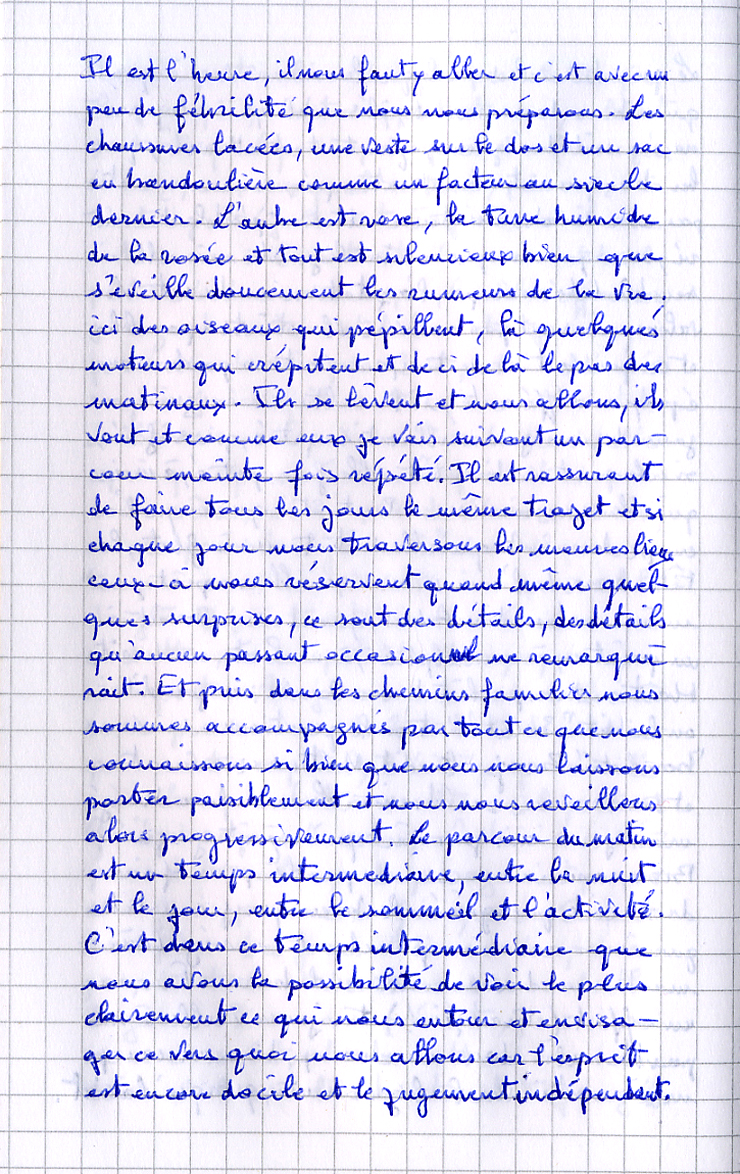 Il est l'heure, il nous faut y aller et c'est avec un
peu de fébrilité que nous nous préparons. Les
chaussures lacées, une veste sur le dos et un sac
en bandoulière comme un facteur au siècle
dernier. L'aube est rose, la terre humide
de la rosée et tout est silencieux bien que
s'éveille doucement les rumeurs de la vie.
ici des oiseaux qui pépillent, là quelques
moteurs qui crépitent et de ci de là le pas des
matinaux. Ils se lèvent et nous allons, ils
vont et comme eux je vais suivant un par-
cour mainte fois répété. Il est rassurant
de faire tous les jours le même trajet et si
chaque jour nous traversons les meme lieux
ceux-ci nous réservent quand même quel-
ques surprises, ce sont des détails, des détails
qu'aucun passant occasionnel ne remarque
rait. Et puis dans les chemins familier nous
sommes accompagnés par tout ce que nous
connaissons si bien que nous nous laissons
porter paisiblement et nous nous reveillons
alors progressivement. Le parcour du matin
est un temps intermediaire, entre la nuit
et le jour, entre le sommeil et l'activité.
C'est dans ce temps intermédiaire que
nous avons la possibilité de voir le plus
clairement ce qui nous entour et envisa-
ger ce vers quoi nous allons car l'esprit
est encore docile et le jugement indépendant.